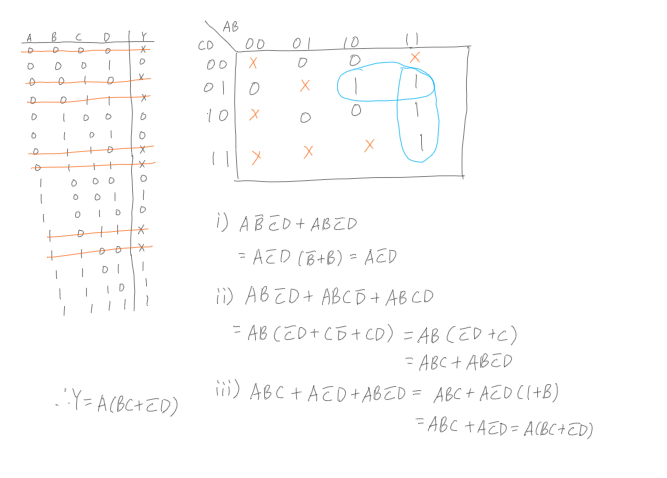 A B C D Y
0 0 0 0 X
0 0 0 1 0
0 0 1 0 X
0 0 1 1 X
0 1 0 0 0
0 1 0 1 0
0 1 1 0 X
0 1 1 1 X
1 0 0 0 0
1 0 0 1 1
1 0 1 0 0
1 0 1 1 X
1 1 0 0 X
1 1 0 1 1
1 1 1 0 1
1 1 1 1 1
AB
CD 00 01 10 11
00 X 0 0 X
01 0 X 1 1
10 X 0 0 1
11 X X X 1
i) AB̄C̄D + ABC̄D
= AC̄D (B̄+B) = AC̄D
ii) ABC̄D + ABCD̄ + ABCD
= AB (C̄D + CD̄ + CD) = AB (C̄D + C)
= ABC + ABC̄D
iii) ABC + AC̄D + ABC̄D = ABC + AC̄D (1+B)
= ABC + AC̄D = A(BC+C̄D)
∴ Y = A(BC+C̄D)